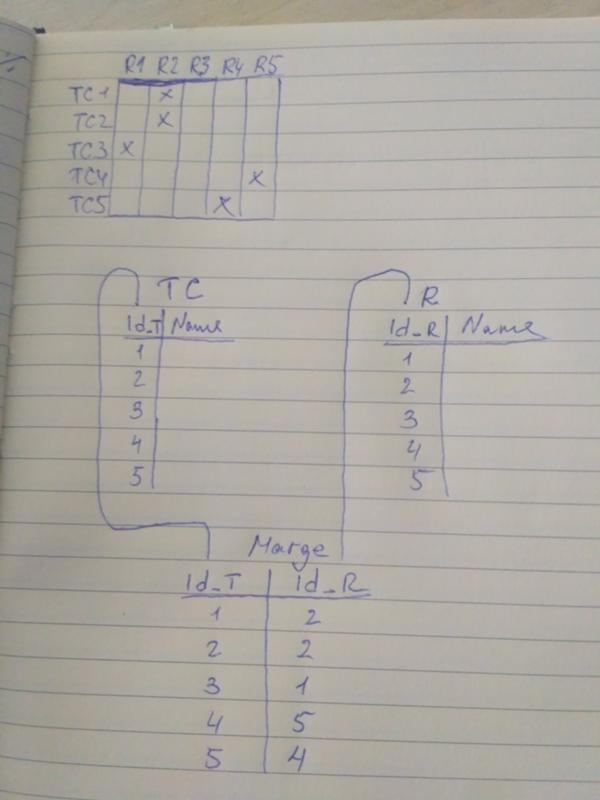 R1 R2 R3 R4 R5
TC1 x
TC2 x
TC3 x
TC4 x
TC5 x
TC R
Id_T Name Id_R Name
1 1
2 2
3 3
4 4
5 5
Marge
Id_T Id_R
1 2
2 2
3 1
4 5
5 4